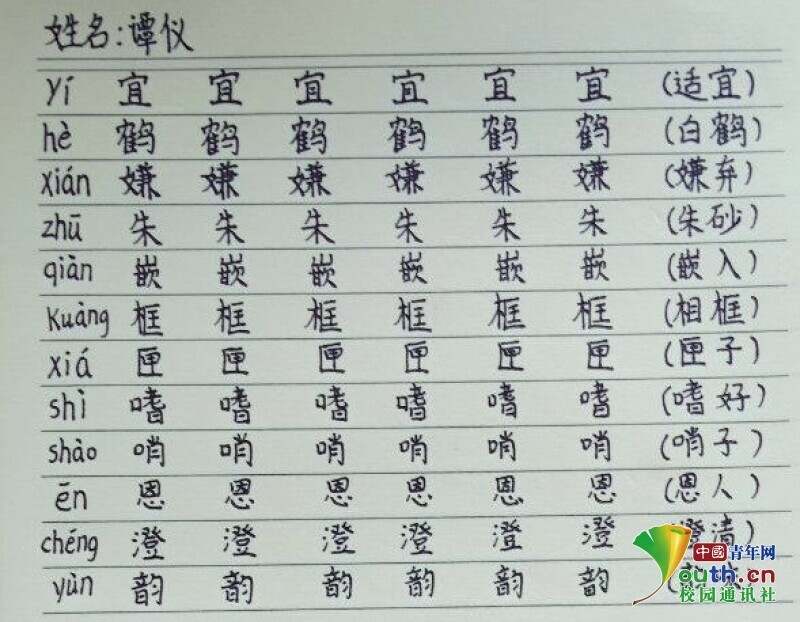 姓名:谭仪
yí 宜 宜 宜 宜 宜 宜 (适宜)
hè 鹤 鹤 鹤 鹤 鹤 鹤 (白鹤)
xián 嫌 嫌 嫌 嫌 嫌 嫌 (嫌弃)
zhū 朱 朱 朱 朱 朱 朱 (朱砂)
qiàn 嵌 嵌 嵌 嵌 嵌 嵌 (嵌入)
Kuàng 框 框 框 框 框 框 (相框)
xiá 匣 匣 匣 匣 匣 匣 (匣子)
shì 嗜 嗜 嗜 嗜 嗜 嗜 (嗜好)
shào 哨 哨 哨 哨 哨 哨 (哨子)
ēn 恩 恩 恩 恩 恩 恩 (恩人)
chéng 澄 澄 澄 澄 澄 澄 (澄清)
yùn 韵 韵 韵 韵 韵 韵
中國青年网
youth.cn
校园通讯社